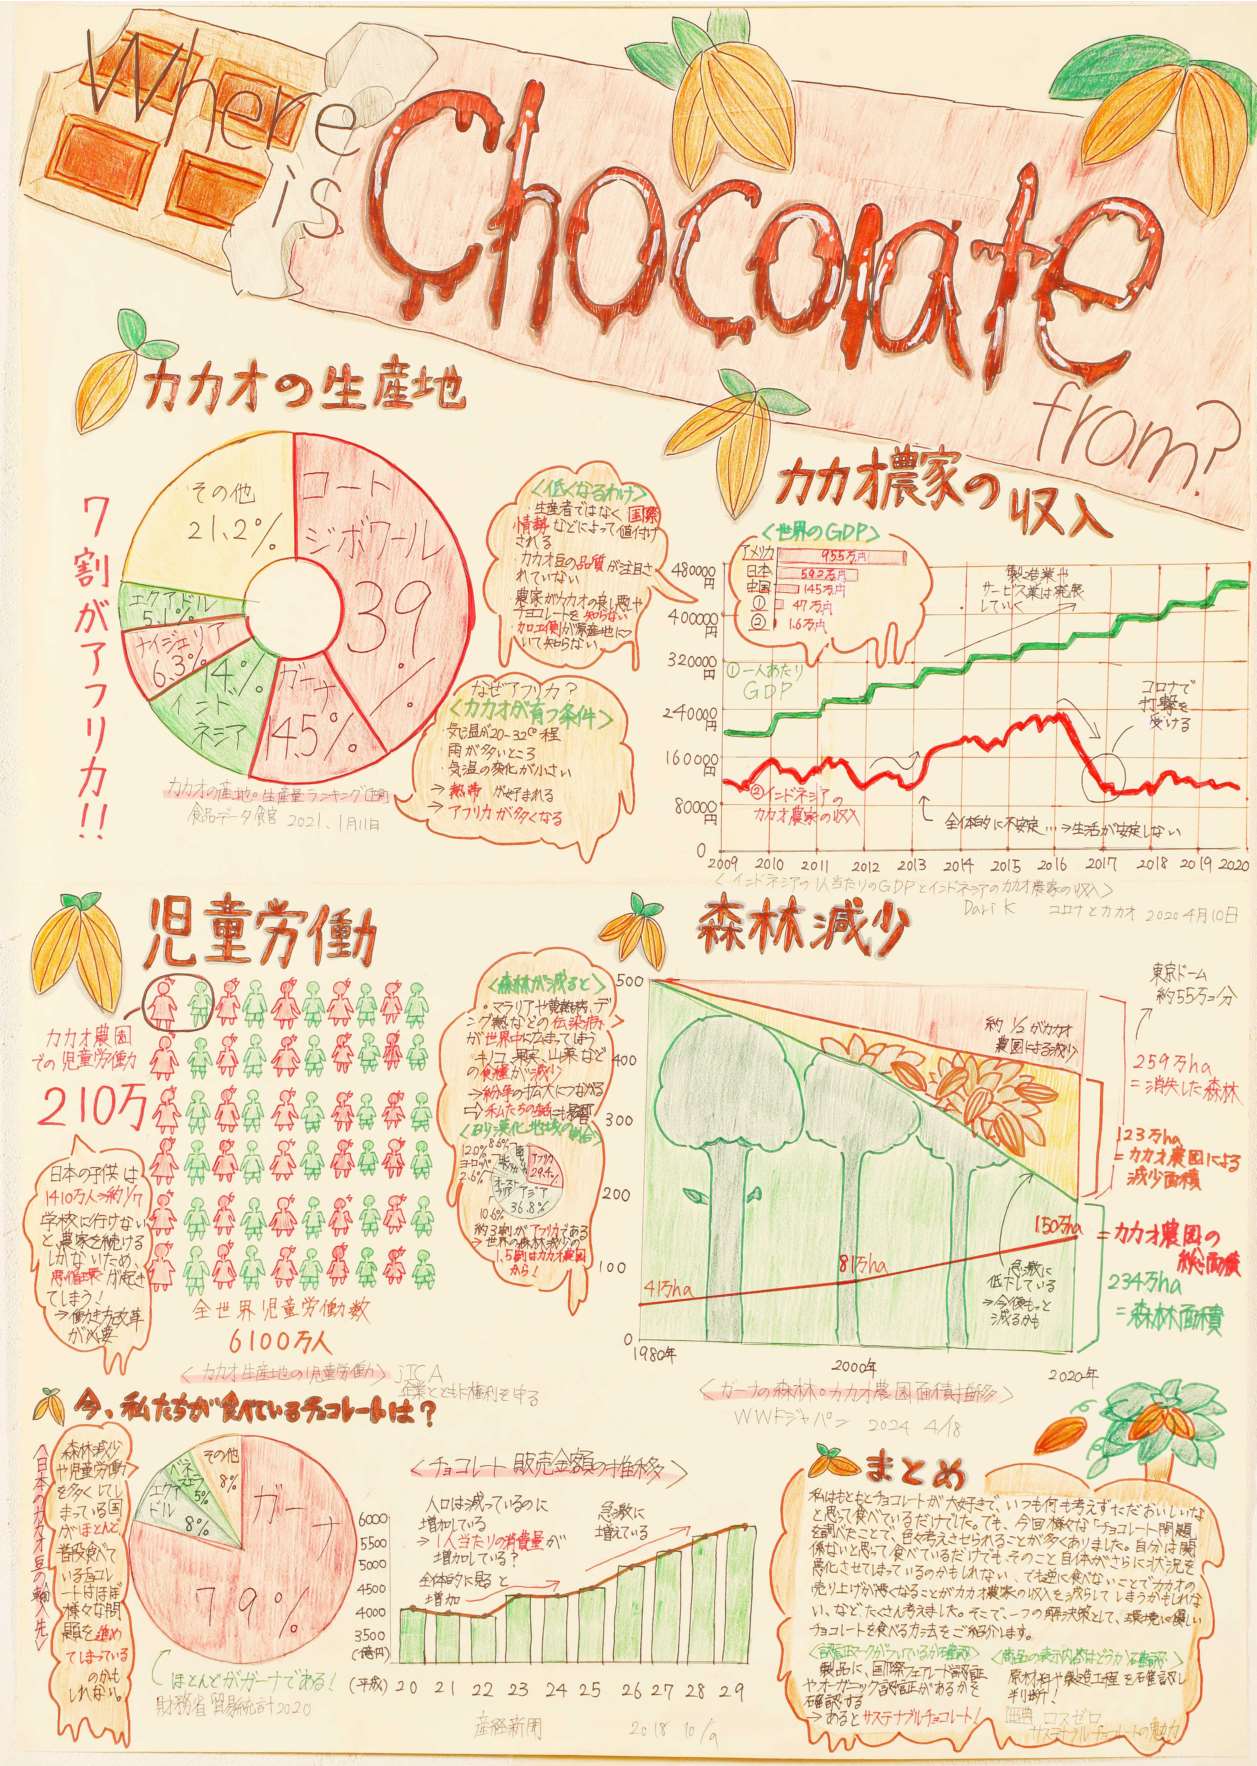 Where
is
Chocolate
from?
カカオの生産地
7割がアフリカ!!
コート
ジボワール
39
%
ガーナ
14.5%
14%
インド
ネシア
ナイジェリア
6.3%
エクアドル
5.1%
その他
21.2%
カカオの産地。生産量ランキング
食品データ食官 2021、1月11日
<低くなるわけ>
・生産者ではなく国際
情勢などによって値付け
される
・カカオ豆の品質が注目さ
れていない
・農家がカカオの良し悪や
チョコレートを知らない
・加工側が原産地につ
いて知らない
なぜアフリカ?
<カカオが育つ条件>
・気温が20~32℃程
・雨が多いところ
・気温の変化が小さい
→熱帯が好まれる
→アフリカが多くなる
カカオ農家の収入
<世界のGDP>
アメリカ 955万円
日本 592万円
中国 145万円
① 47万円
② 1.6万円
480000円
400000円
320000円
240000円
160000円
80000円
0
製造業や
サービス業は発展
していく
①一人あたり
GDP
コロナで
打撃を
受ける
②インドネシアの
カカオ農家の収入
全体的に不安定…→生活が安定しない
2009 2010 2011 2012 2013 2014 2015 2016 2017 2018 2019 2020
<インドネシアの1人当たりのGDPとインドネシアのカカオ農家の収入>
Dari K コロナとカカオ 2020 4月10日
児童労働
カカオ農園
での児童労働
210万
日本の子供は
1410万人→約1/7
学校に行けない
と、農家を続ける
しかないため、
悪循環が起き
てしまう!
→働き方改革
が必要
全世界児童労働数
6100万人
<カカオ生産地の児童労働> JICA
企業とともに権利を守る
森林減少
<森林が減ると>
・マラリアや黄熱病、デ
ング熱などの伝染病
が世界中に広まってしまう
・キノコ、果実、山菜など
の食糧が減少
→紛争の拡大につながる
⇨私たちの生活にも影響
<砂漠化地域の割合>
アフリカ
29.4%
アジア
36.8%
オースト
ラリア
10.6%
ヨーロッパ
2.6%
12.0%
8.6%
約3割がアフリカである
→世界の森林減少の
1.5割はカカオ農園
から!
500
400
300
200
100
0
約1/2がカカオ
農園による減少
41万ha
81万ha
150万ha
急激に
低下している
→今後もっと
減るかも
1980年
2000年
2020年
東京ドーム
約55万コ分
259万ha
=消失した森林
123万ha
=カカオ農園による
減少面積
=カカオ農園の
総面積
234万ha
=森林面積
<ガーナの森林。カカオ農園面積推移>
WWFジャパン 2024 4/18
今、私たちが食べているチョコレートは?
<日本のカカオ豆の輸入先>
森林減少
や児童労働
を多くしてし
まっている国
がほとんど
普段食べて
いるチョコレ
ートはほぼ
様々な問
題を進め
てしまっている
のかも
しれない。
ガーナ
79%
エクア
ドル
8%
ベネ
ズエラ
5%
その他
8%
ほとんどがガーナである!
財務省 貿易統計2020
<チョコレート販売金額の推移>
6000
5500
5000
4500
4000
3500
(億円)
人口は減っているのに
増加している
→1人当たりの消費量が
増加している?
全体的に見ると
増加
急激に
増えている
(平成) 20 21 22 23 24 25 26 27 28 29
産経新聞 2018 10/9
まとめ
私はもともとチョコレートが大好きで、いつも何も考えずただおいしいな
と思って食べているだけでした。でも、今回様々な「チョコレート問題」
を調べたことで、色々考えさせられることが多くありました。自分は関
係ないと思って食べているだけでも、そのこと自体がさらに状況を
悪化させてしまっているのかもしれない、でも逆に食べないことでカカオの
売り上げが悪くなることがカカオ農家の収入を減らしてしまうかもしれな
い、など、たくさん考えました。そこで、一つの解決策として、環境に優しい
チョコレートを食べる方法をご紹介します。
<認証マークがついているか確認>
製品に、国際フェアトレード認証
やオーガニック認証があるかを
確認する
→あるとサステナブルチョコレート!
<商品の表示内容はどうか確認>
原材料や製造工程を確認し
判断!
出典 コスゼロ
サステナブルチョコレートの魅力